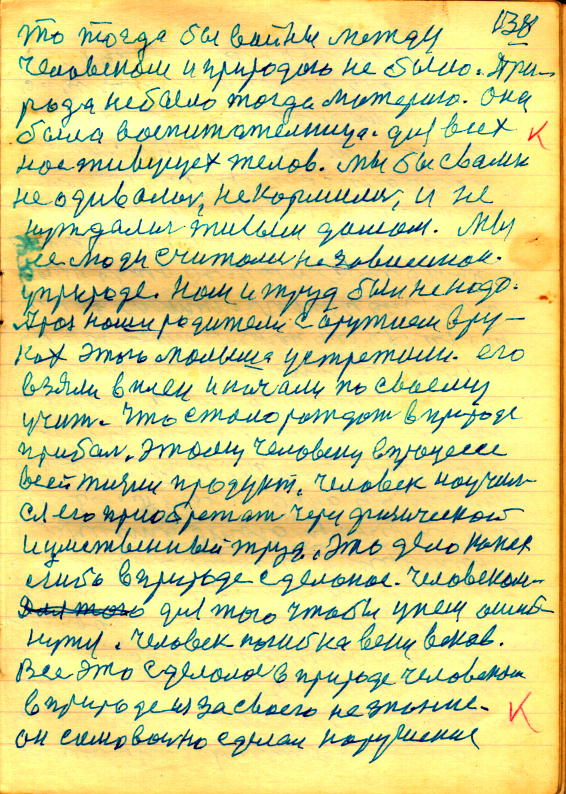 138
то тогда бы войны между
человеком и природою не было. При-
рода небыло тогда материю. она
была воспитателница. для всех
ноеживущех телов. мы бы свами
не одивалис, некормилис, и не
нуждалис жилым домом. Мы
не люди считали независимой.
уприроде. Нам и труд был ненадо.
наши родители соружием вру-
ках этого малыша устретили. его
взяли вплен иначали посвоему
учит. Что стало рождат вприроде
прибал. Этому человеку впроцесе
всей жизни продукт. Человек научил-
ся его приобретат через физической
иумственный труд. Это дело
либо вприроде сделоное. Человеком
для того чтобы унем
нужд. Человек ошибка веки веков.
Все это сделолос вприроде человеком
вприроде из за своего незнание.
он самовольно сделал нарушение
К
К